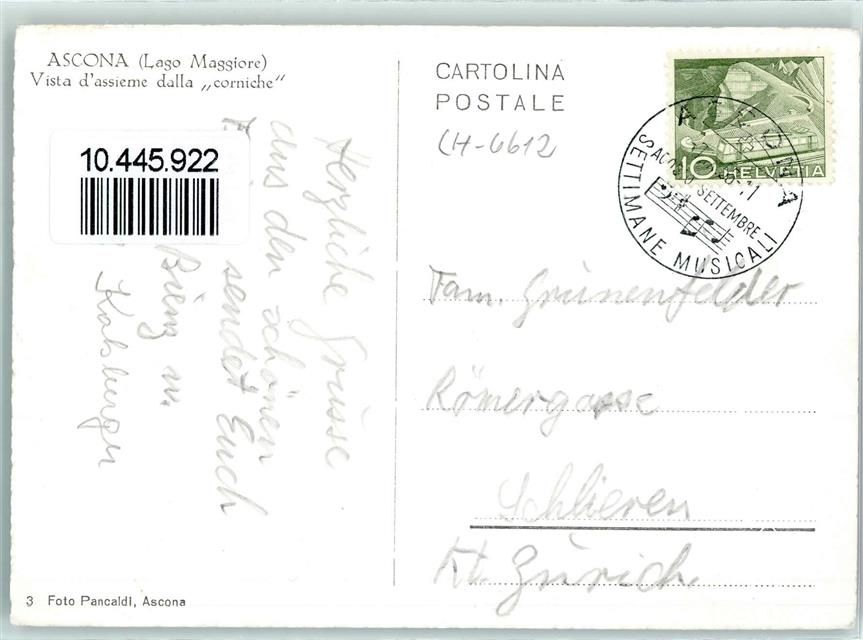 ASCONA (Lago Maggiore)
Vista d'assieme dalla „corniche"
10.445.922
Herzliche Grüsse
aus den schönen
sendet Euch
CARTOLINA
POSTALE
CH-6612
10 HELVETIA
ASCONA
AGOSTO SETTEMBRE
SETTIMANE MUSICALI
Fam. Grünenfelder
Römergasse
Schlieren
Kt. Zürich.
3 Foto Pancaldi, Ascona